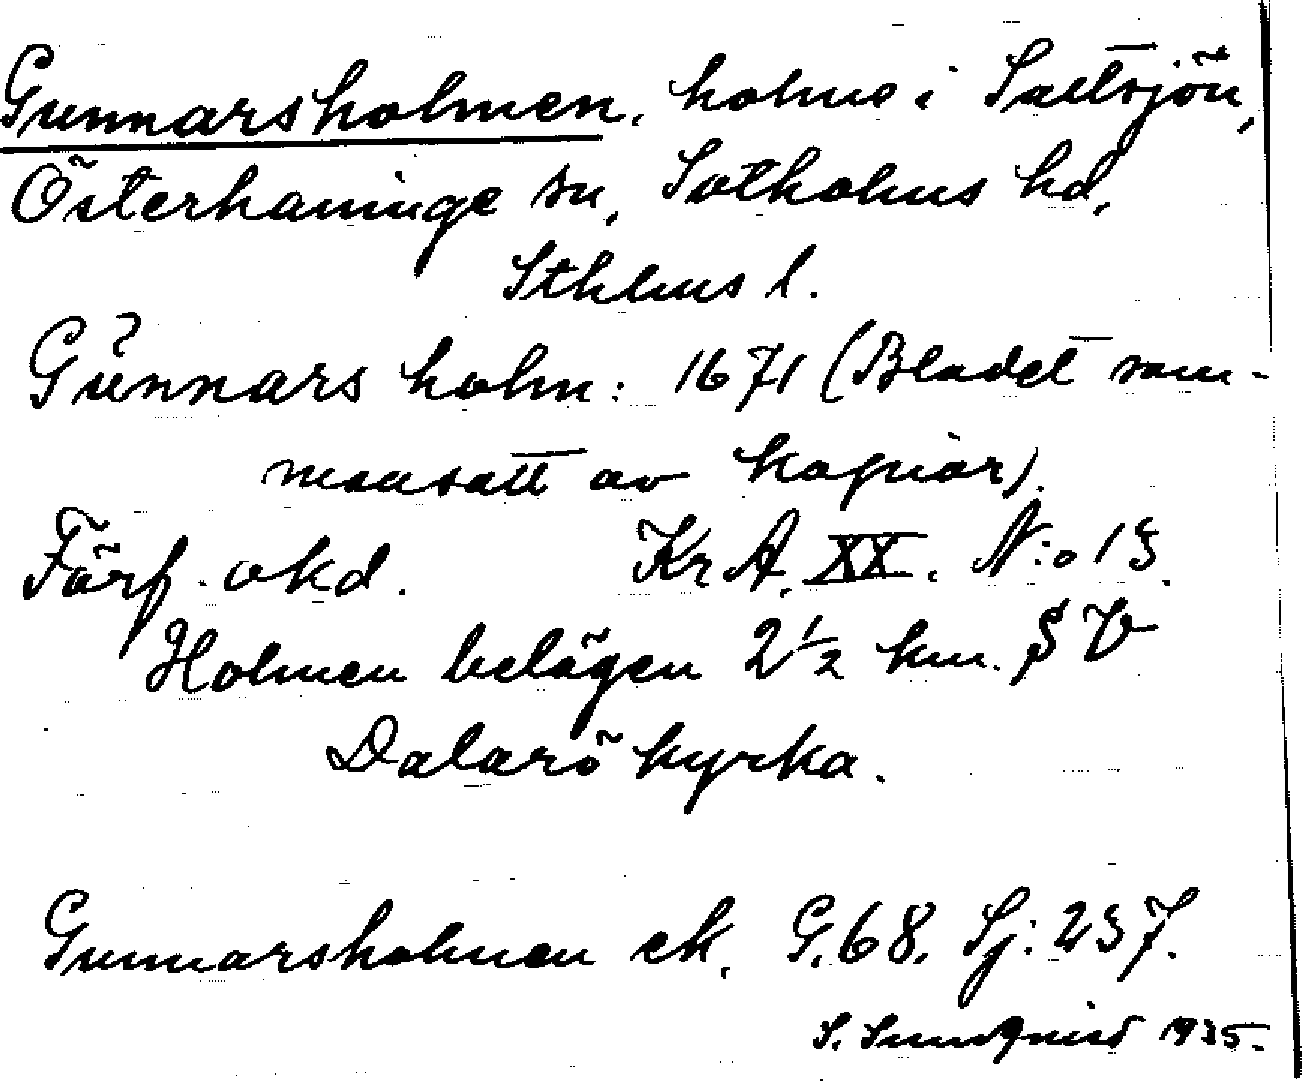 Gunnarsholmen, holme i Saltsjön,
Österhaninge sn, Sotholms hd,
Sthlms l.
Gunnars holm: 1671 (Bladet sam-
mansatt av kopior).
Förf. okd. Kr A. XX. N:o 13.
Holmen belägen 2 1/2 km. SV
Dalarö kyrka.
Gunnarsholmen ek. G. 68. Sj: 237.
S. Sundqvist 1935.